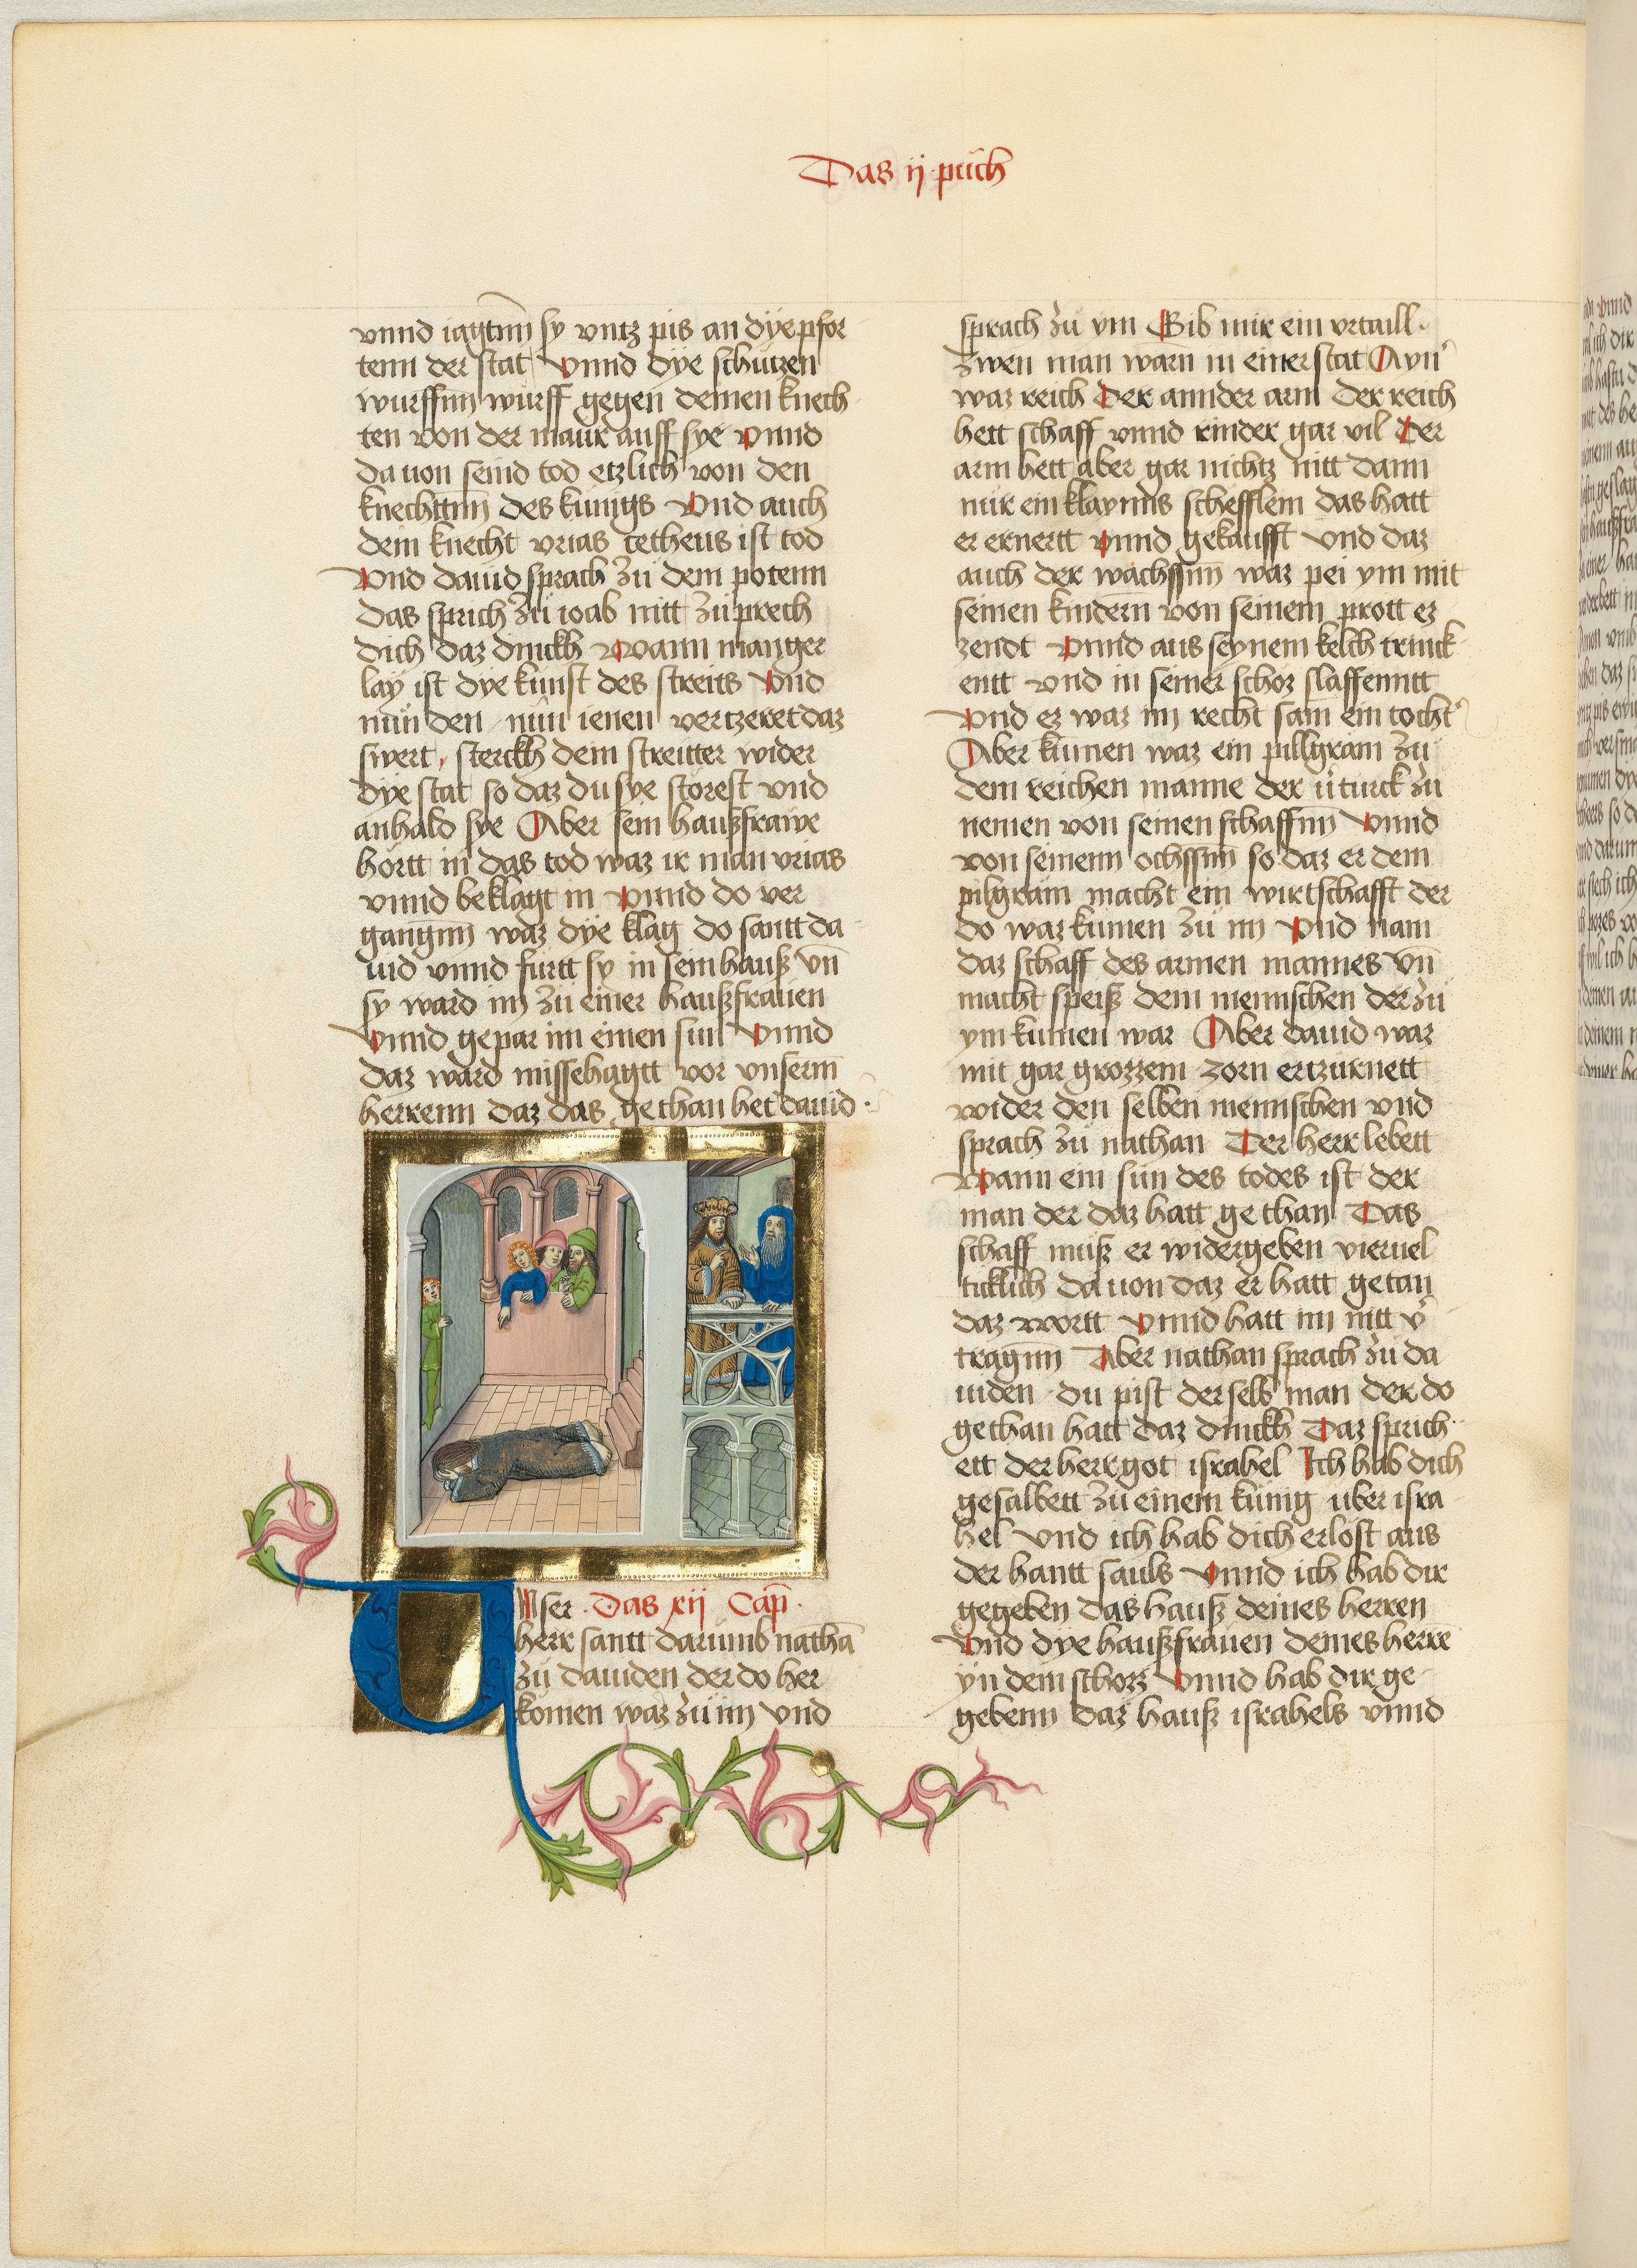 Das ij puch
vnnd iagtnn sy vntz pis an dye pfor
tenn der stat Vnnd dye schutzen
wurffnn wurff gegen deinen knech
ten von der maur auff sye vnnd
da uon seind tod etzlich von den
knechttnn des kunigs Vnd auch
dein knecht vrias etheus ist tod
Vnd dauid sprach zu dem potenn
Das sprich zu ioab nitt zu prech
dich daz dinckh Wann manger
lay ist dye kunst des streits Vnd
nun den nun ienen vertzeret daz
swert, sterckh dein streitter wider
dye stat so daz du sye storest vnd
anhald sye Aber sein haußfrawe
hortt in das tod waz ir man vrias
vnnd beklagt in vnnd do ver
gangnn waz dye klag do santt da
uid vnnd furtt sy in sein hauß vn̄
sy ward im zu einer haußfrauen
Vnnd gepar im einen sun Vnnd
daz ward missehagtt vor vnserm
herrenn daz das gethan het dauid.
VNser . Das xij Cap̄ .
herr santt darumb nathā
zu dauiden der do her
komen waz zu im vnd
sprach zu ym Gib mir ein vrtaill.
Zwen man warn in einer stat Ayn̾
waz reich Der annder arm der reich
hett schaff vnnd rinder gar vil Der
arm hett aber gar nichtz nitt dann
nur ein klaynns schefflein das hatt
er ernertt vnnd gekaufft vnd daz
auch der wachssnn waz pei ym mit
seinen kindern von seinem prott ez
zendt vnnd aus seynem kelch trinck
entt vnd in seiner schoz slaffenntt
Vnd ez waz im recht sam ein tocht̾
Aber kumen waz ein pillgram zu
dem reichen manne der v̾turck zu
nemen von seinen schaffnn vnnd
von seinenn ochssnn so daz er dem
pilgram macht ein wirtschafft der
do waz kumen zu im vnd nam
daz schaff des armen mannes vn̄
macht speisz dem mennschen der zu
ym kumen war Aber dauid waz
mit gar grozzem zorn ertzurnett
wider den selben mennschen vnd
sprach zu nathan Der herr lebett
Wann ein sun des todes ist der
man der daz hatt gethan Das
schaff muß er widergeben vieruel
ticklich da uon daz er hatt getan
daz wortt vnnd hatt im nitt v̾
tragnn Aber nathan sprach zu da
uiden du pist der selb man der do
gethan hatt daz dinckh Daz sprich
ett der herr got israhel Ich hab dich
gesalbett zu einem kunig uber isra
hel vnd ich hab dich erlost aus
der hantt sauls vnnd ich hab dir
gegeben das hauß deines herren
Vnd dye haußfrauen deines herre
yn dein schozz vnnd hab dir ge
gebenn daz hauß israhels vnnd